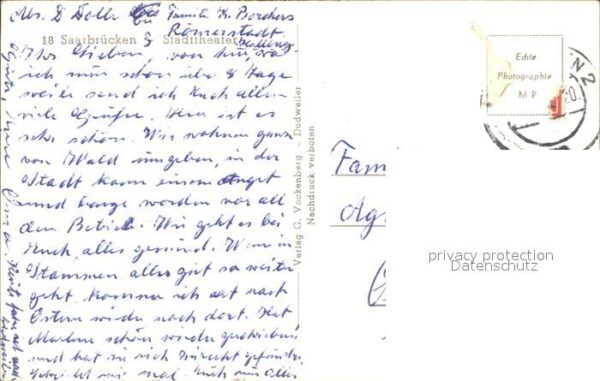 Abs. D Dolle bei Familie K. Borchers
Römerstadt
18 Saarbrücken Stadttheater
Ihr Lieben, von hier, wo
ich nun schon über 8 Tage
weile send ich Euch allen
viele Grüsse. Hier ist es
sehr schön. Wir wohnen ganz
von Wald umgeben, in der
Stadt kann einem Angst
und bange werden vor all
dem Betrieb. Wie geht es bei
Euch, alles gesund. Wenn in
Stammen alles gut so weiter
geht, komme ich erst nach
Ostern wieder nach dort. Hat
Marlene schön wieder geschrieben
und hat sie sich zurecht gefunden.
mal. Euch nun alles
Gute, Eure Oma
Verlag G. Vockenberg - Dudweiler
Nachdruck verboten
Echte
Photographie
M P
Fami
Ag
privacy protection
Datenschutz